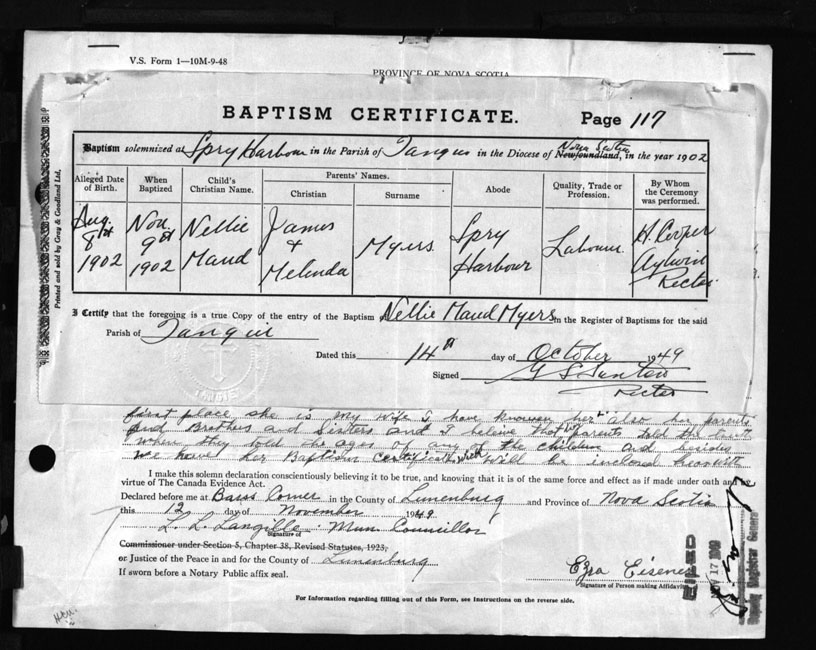 V.S. Form 1—10M-9-48
PROVINCE OF NOVA SCOTIA
BAPTISM CERTIFICATE. Page 117
Baptism solemnized at Spry Harbour in the Parish of Tangier in the Diocese of Nova Scotia Newfoundland, in the year 1902
Alleged Date of Birth. When Baptized Child's Christian Name. Parents' Names. Christian Surname Abode Quality, Trade or Profession. By Whom the Ceremony was performed.
Aug. 8th 1902 Nov. 9th 1902 Nellie Maud James & Melinda Myers Spry Harbour Labourer H. Cooper Aylwin Rector
Printed and sold by Gray & Goodland Ltd.
I Certify that the foregoing is a true Copy of the entry of the Baptism of Nellie Maud Myers in the Register of Baptisms for the said
Parish of Tangier
Dated this 14th day of October 1949
Signed
Rector
first place she is my wife I have known her also her parents
and Brothers and Sisters and I believe that
when they told the ages of any of the children and besides
we have her Baptism certificate which will be inclosed herewith
I make this solemn declaration conscientiously believing it to be true, and knowing that it is of the same force and effect as if made under oath and by
virtue of The Canada Evidence Act.
Declared before me at Barss Corner in the County of Lunenburg and Province of Nova Scotia
this 12 day of November 1949.
L. L. Langille Mun. Councillor
Signature of
Commissioner under Section 5, Chapter 38, Revised Statutes, 1923,
or Justice of the Peace in and for the County of Lunenburg
If sworn before a Notary Public affix seal.
Ezra Eisener
Signature of Person making Affidavit
For Information regarding filling out of this Form, see Instructions on the reverse side.
NOV 17 1949
Deputy Registrar General